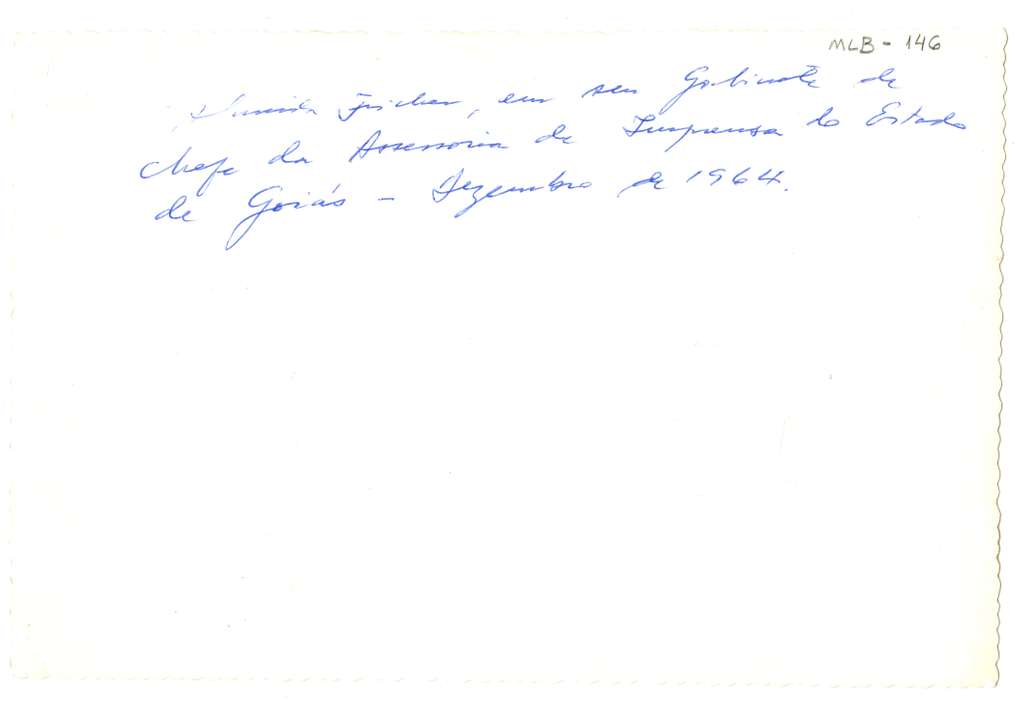 MLB - 146
Fischer, em seu Gabinete de
Chefe da Assessoria de Imprensa do Estado
de Goiás - Dezembro de 1964.